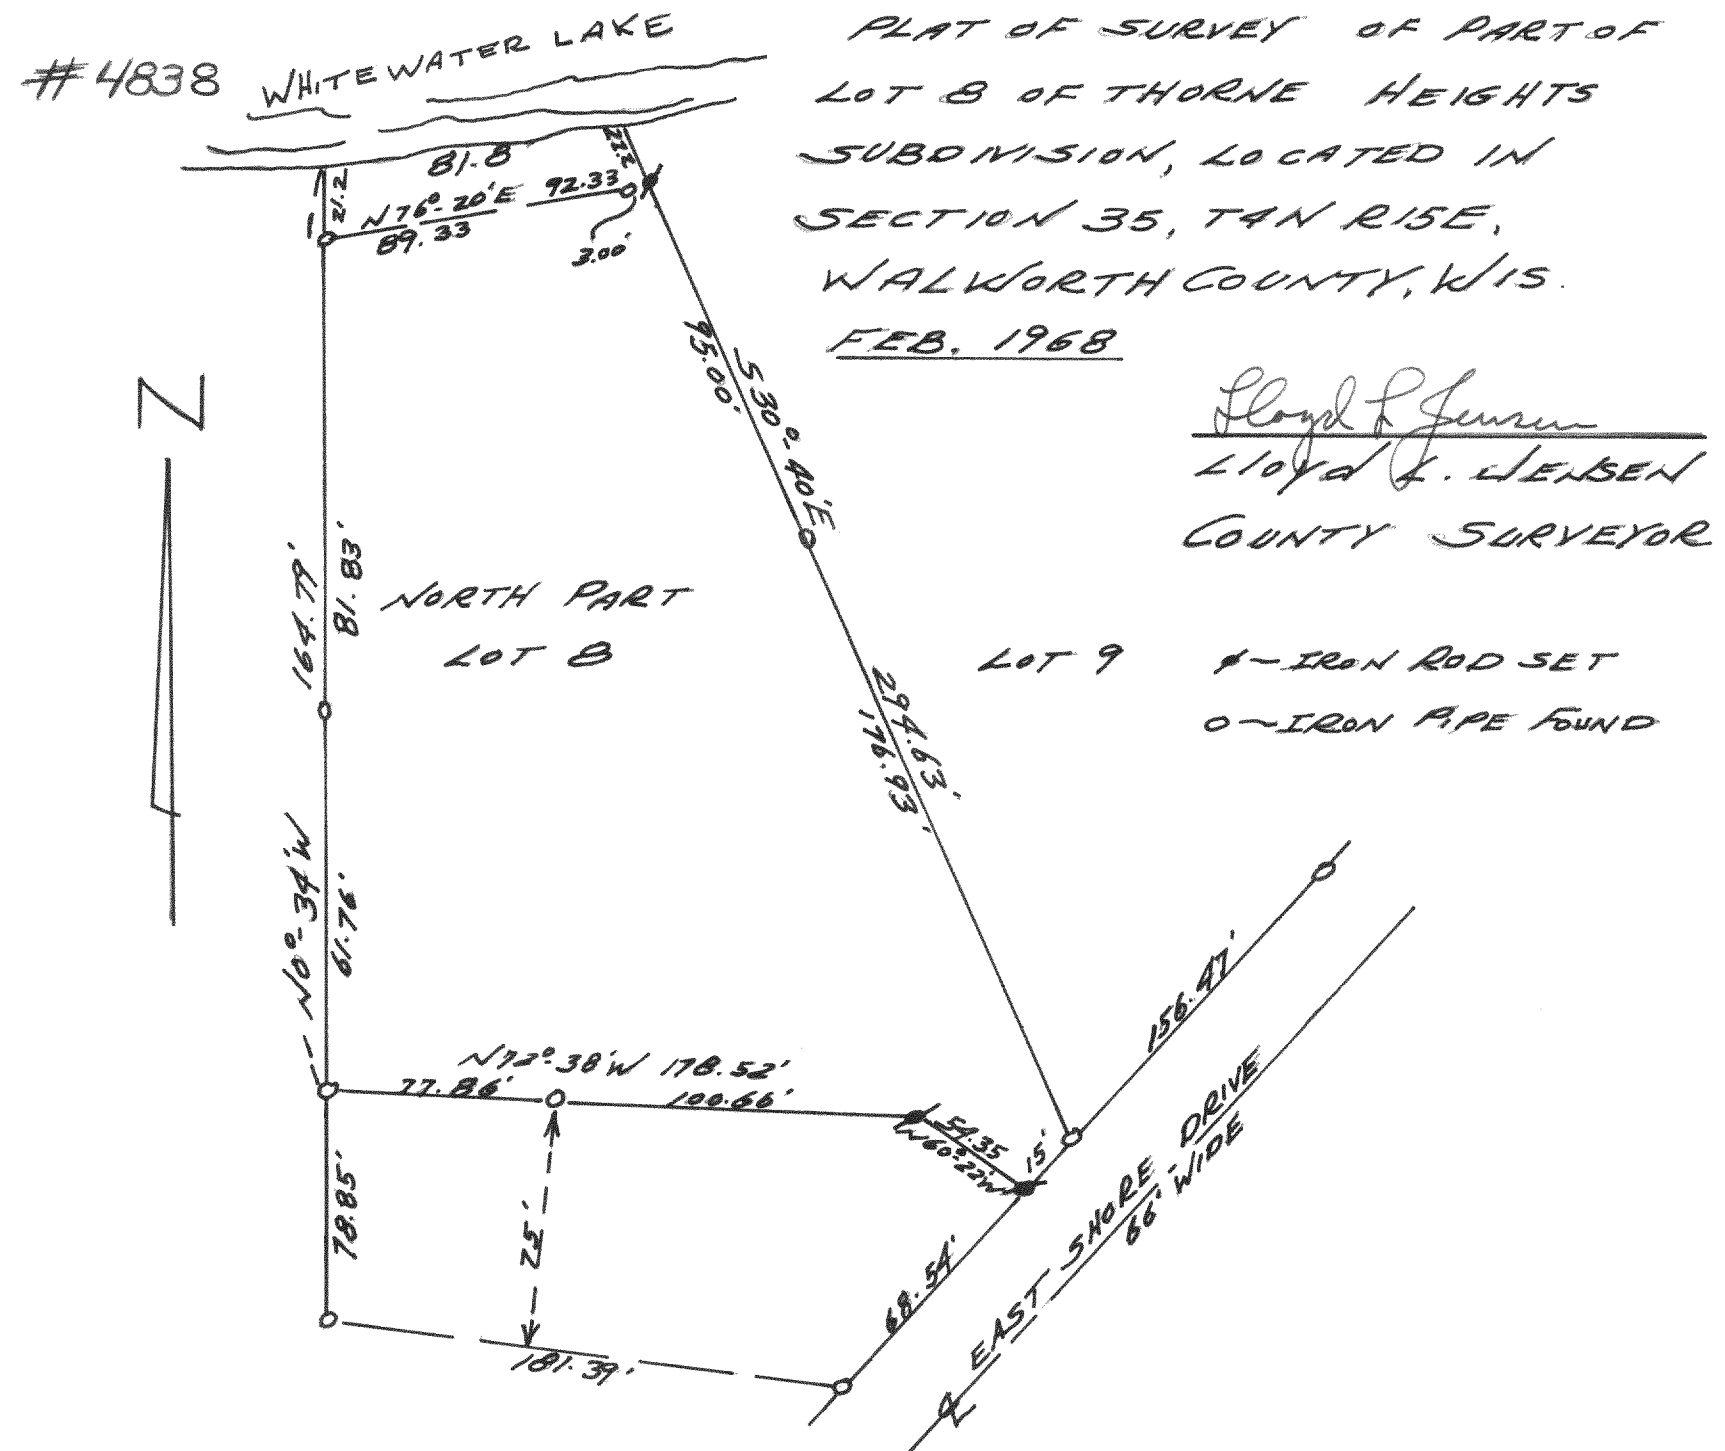 #4838
WHITEWATER LAKE
PLAT OF SURVEY OF PART OF
LOT 8 OF THORNE HEIGHTS
SUBDIVISION, LOCATED IN
SECTION 35, T4N R15E,
WALWORTH COUNTY, WIS.
FEB. 1968
Lloyd L Jensen
Lloyd L. JENSEN
COUNTY SURVEYOR
81.8
22.2
21.2
N76°-20'E 92.33'
89.33
3.00'
N
S30°-40'E
95.00'
164.79'
81.83'
NORTH PART
LOT 8
LOT 9
ø-IRON ROD SET
o-IRON PIPE FOUND
294.63'
176.93'
N0°-34'W
61.76'
N72°-38'W 178.52'
77.86'
100.66'
54.35
N60°-22'W
15'
156.47'
78.85'
75'
68.54'
181.39'
EAST SHORE DRIVE
66' WIDE